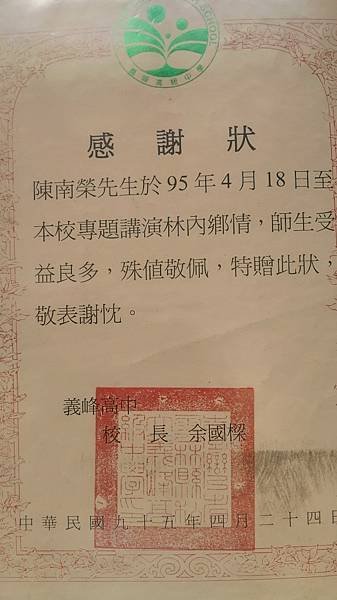 SCHOOL
義峰高級中學
感謝狀
陳南榮先生於 95 年 4 月 18 日至
本校專題講演林內鄉情，師生受
益良多，殊值敬佩，特贈此狀，
敬表謝忱。
義峰高中
校長 余國樑
中華民國九十五年四月二十四日